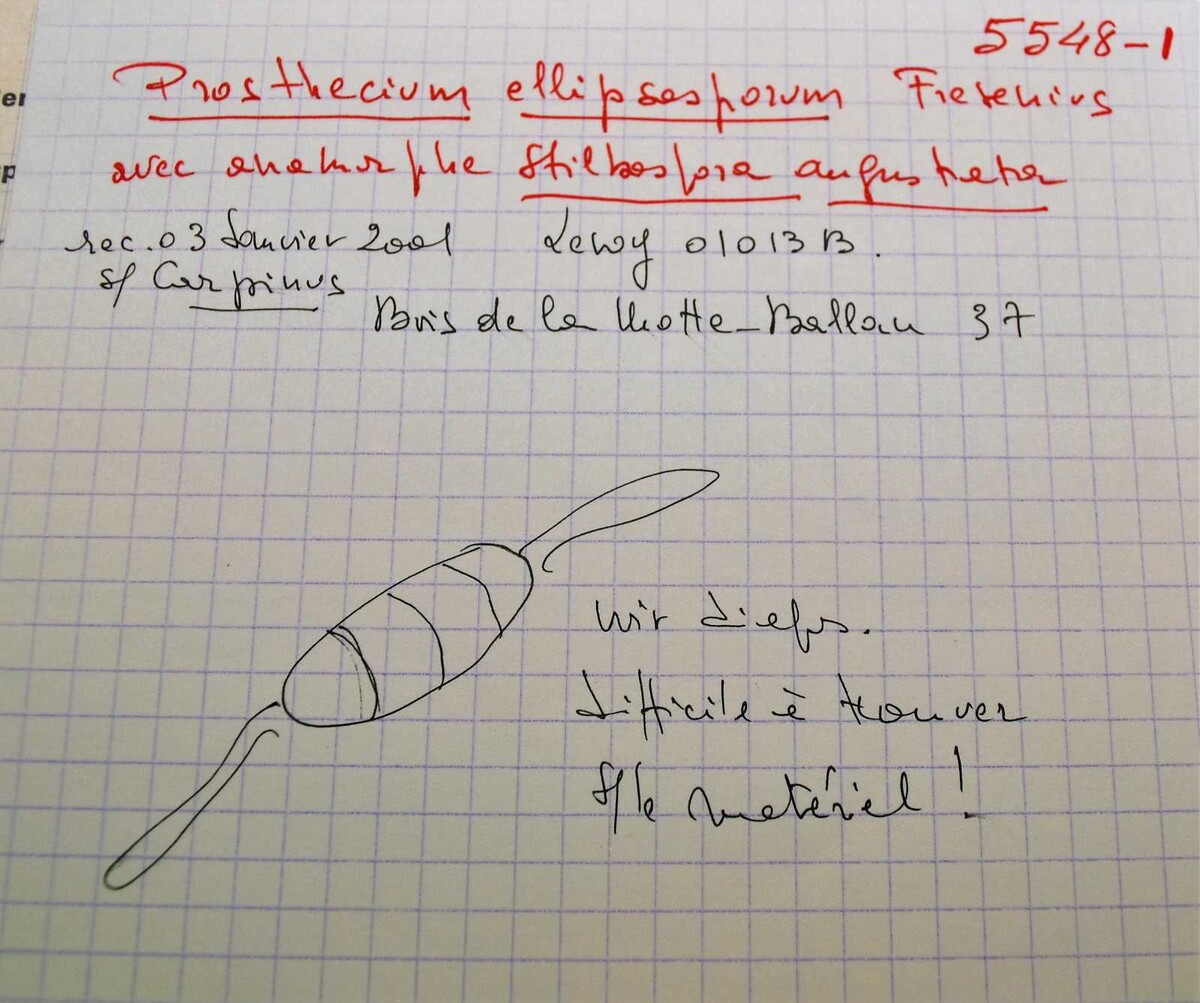 5548-1
Prosthecium ellipsosporum Fresenius
avec anamorphe Stilbospora angustata
rec. 03 Janvier 2001 Lewy 01013B.
s/ Carpinus
Bois de la Motte-Ballan 37
voir diaps.
difficile à trouver
s/le matériel !
er
p